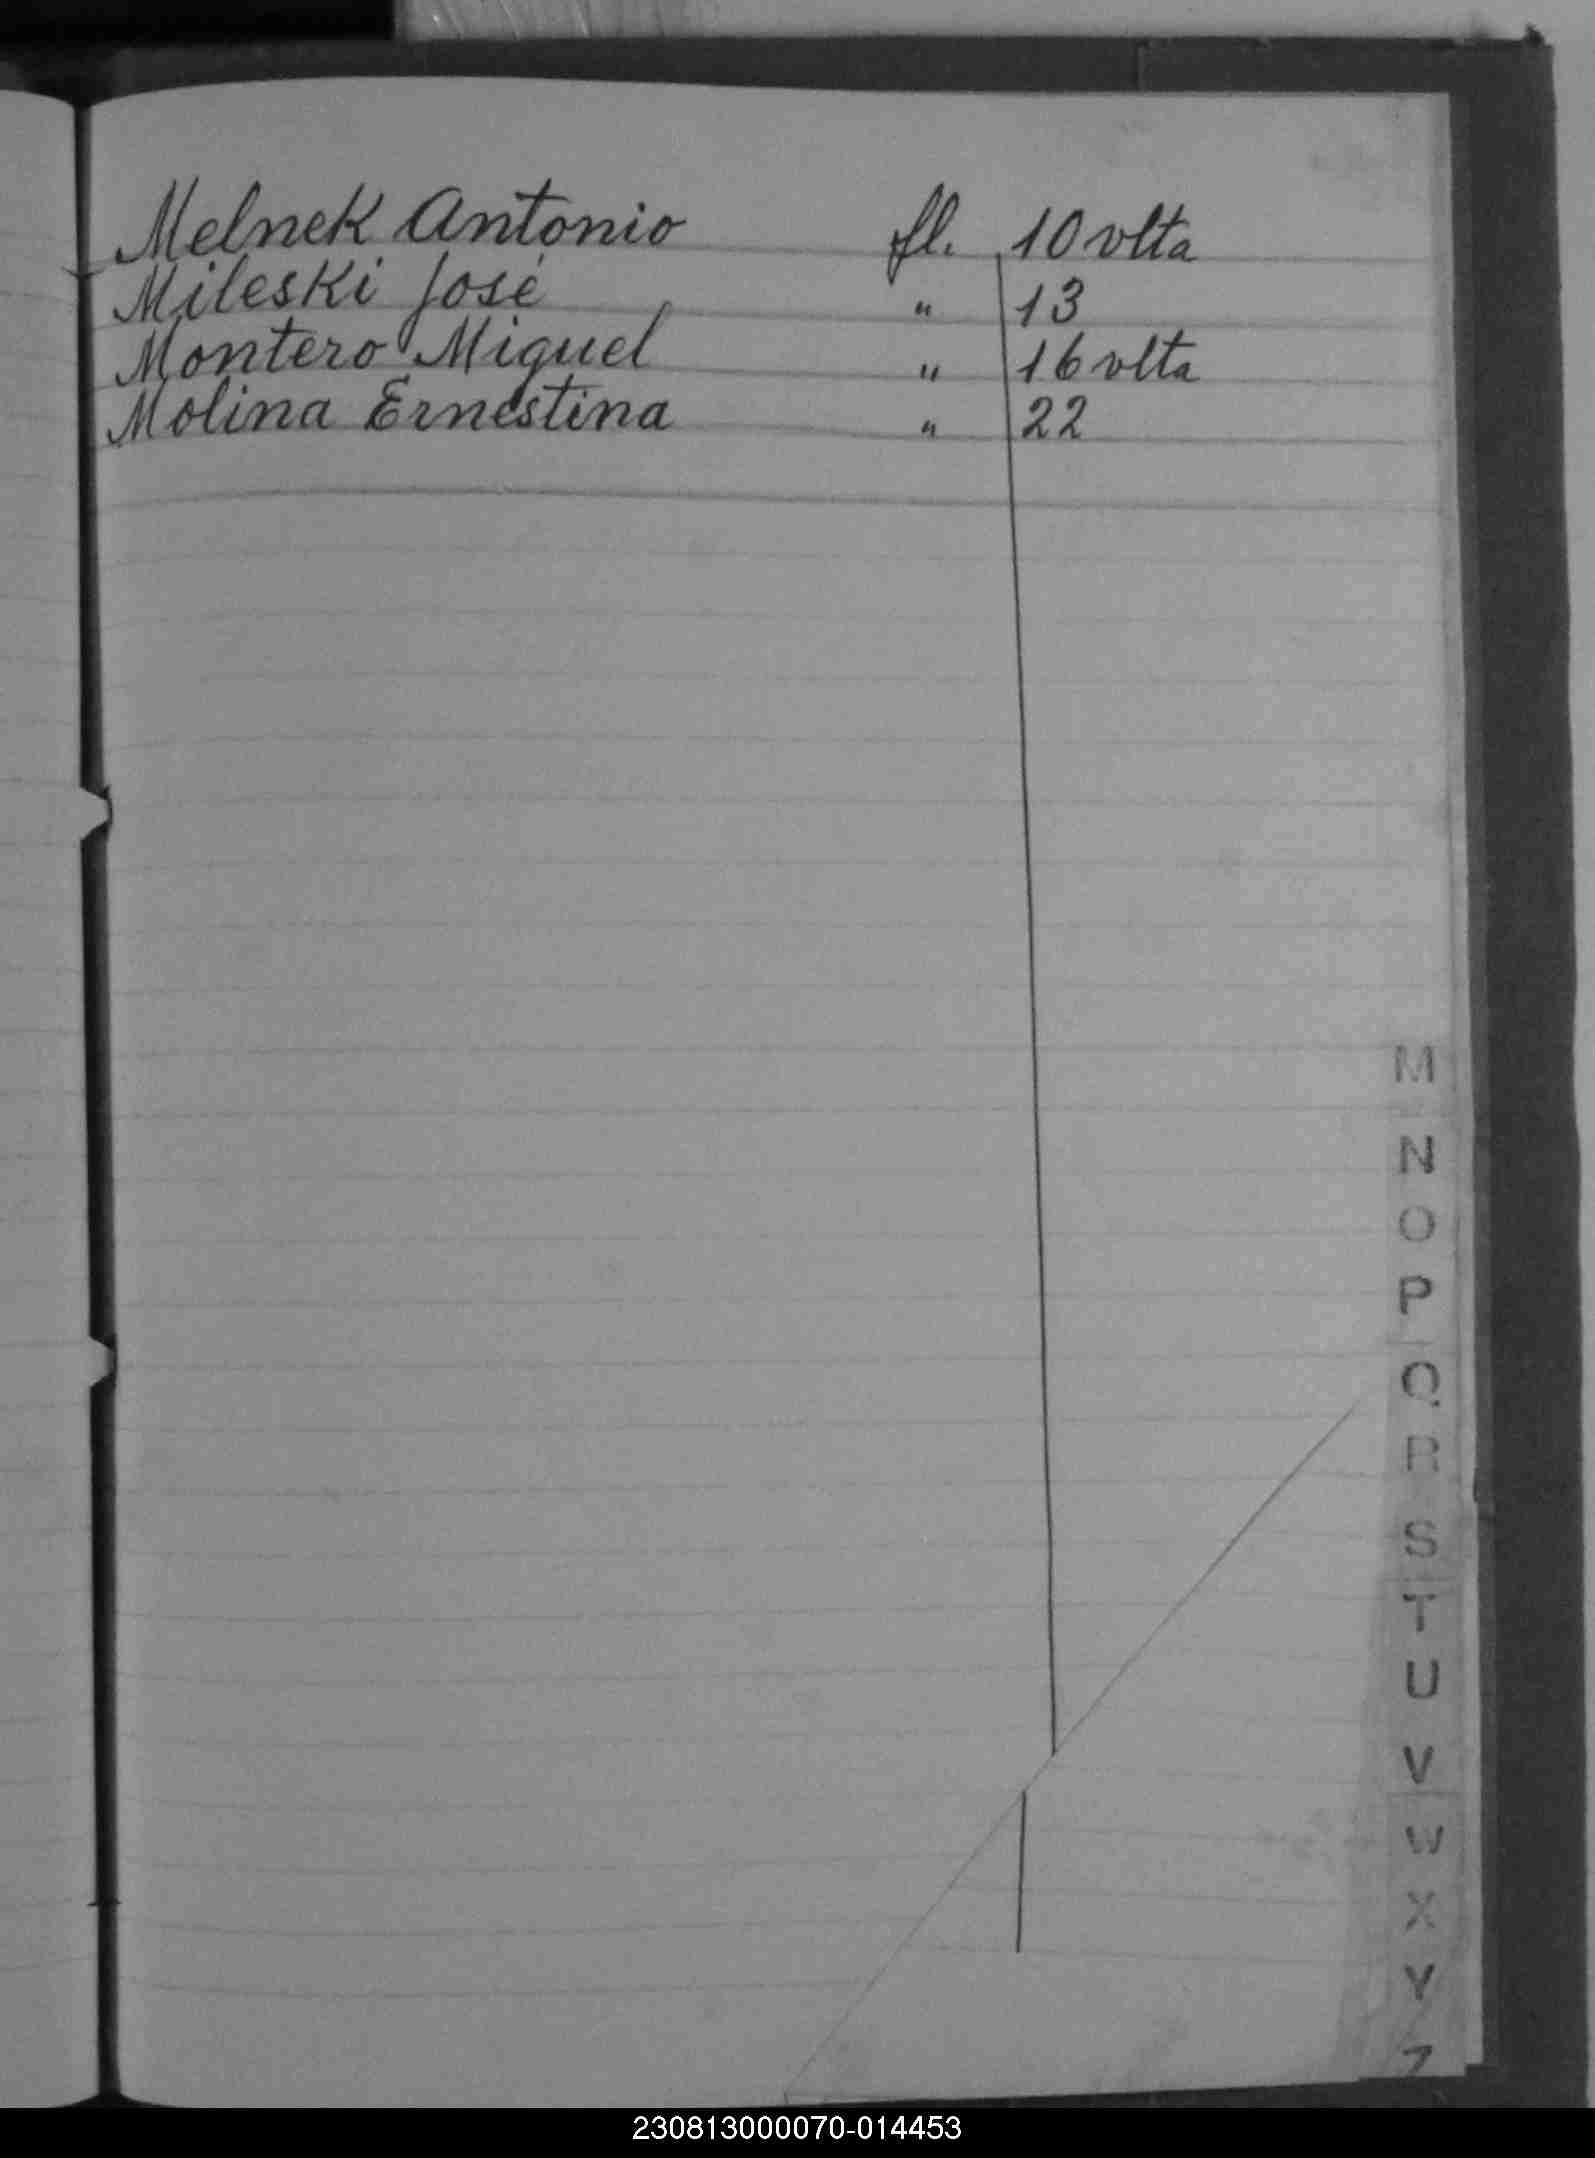 Melnek Antonio fl. 10 vlta
Mileski José " 13
Montero Miguel " 16 vlta
Molina Ernestina " 22
M
N
O
P
Q
R
S
T
U
V
W
X
Y
Z
230813000070-014453